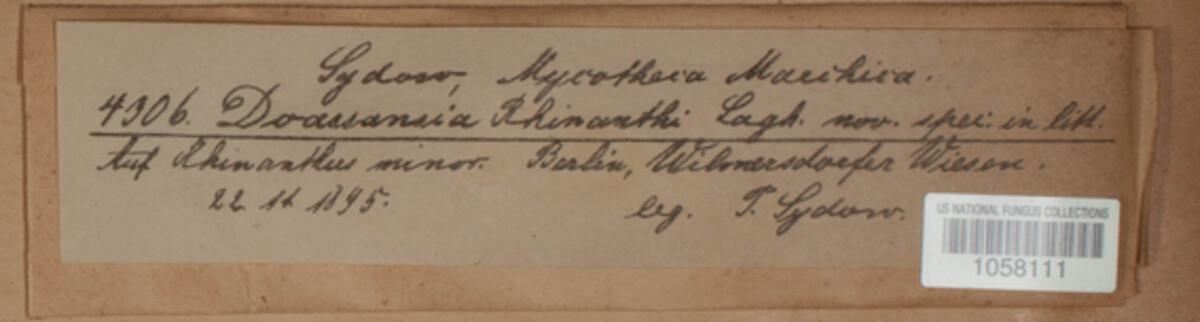 Sydow, Mycotheca Marchica.
4306. Doassansia Rhinanthi Lagh. nov. spec. in litt.
Auf Rhinanthus minor. Berlin, Wilmersdorfer Wiesen.
22 1895. leg. P. Sydow.
US NATIONAL FUNGUS COLLECTIONS
1058111